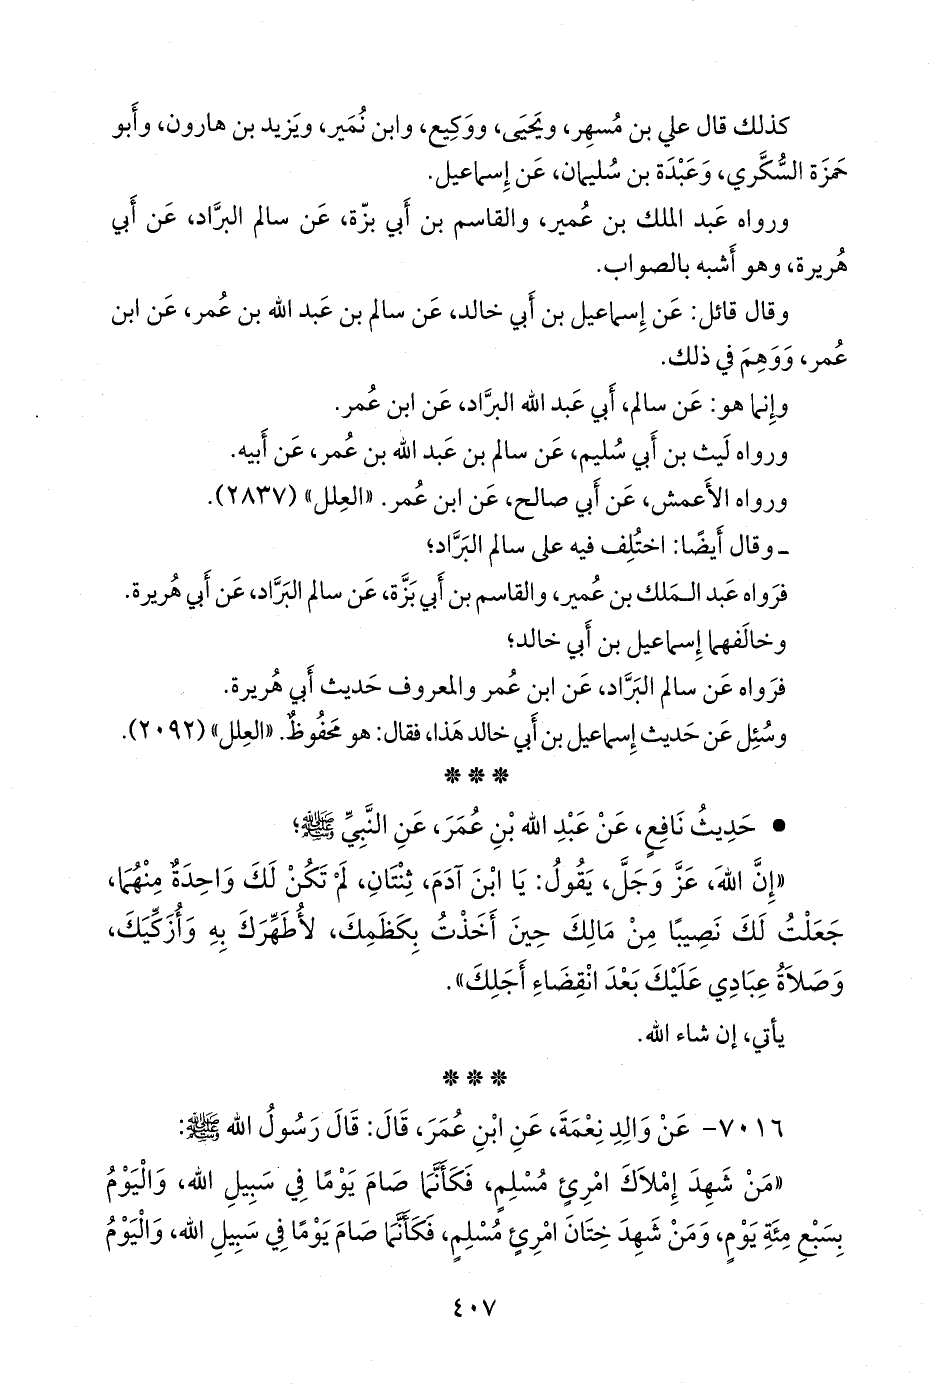 كذلك قال علي بن مُسهِر، ويَحيَى، ووَكِيع، وابن نُمَير، ويَزيد بن هارون، وأَبو
حَمزَة السُّكَّري، وَعَبْدَة بن سُليمان، عَن إِسماعيل.
ورواه عَبد الملك بن عُمير، والقاسم بن أَبي بزّة، عَن سالم البرَّاد، عَن أَبي
هُريرة، وهو أَشبه بالصواب.
وقال قائل: عَن إِسماعيل بن أَبي خالد، عَن سالم بن عَبد الله بن عُمر، عَن ابن
عُمر، وَوَهِمَ في ذلك.
وإِنما هو: عَن سالم، أَبي عَبد الله البرَّاد، عَن ابن عُمر.
ورواه لَيث بن أَبي سُليم، عَن سالم بن عَبد الله بن عُمر، عَن أَبيه.
ورواه الأَعمش، عَن أَبي صالح، عَن ابن عُمر. «العِلل» (٢٨٣٧).
ـ وقال أَيضًا: اختُلِف فيه على سالم البَرَّاد؛
فرَواه عَبد الـمَلك بن عُمير، والقاسم بن أَبي بَزَّة، عَن سالم البَرَّاد، عَن أَبي هُريرة.
وخالَفهما إِسماعيل بن أَبي خالد؛
فرَواه عَن سالم البَرَّاد، عَن ابن عُمر والمعروف حَديث أَبي هُريرة.
وسُئِل عَن حَديث إِسماعيل بن أَبي خالد هَذا، فقال: هو مَحفُوظٌ. «العِلل» (٢٠٩٢).
* * *
• حَدِيثُ نَافِعٍ، عَنْ عَبْدِ الله بْنِ عُمَرَ، عَنِ النَّبِيِّ ﷺ؛
«إِنَّ اللهَ، عَزَّ وَجَلَّ، يَقُولُ: يَا ابْنَ آدَمَ، ثِنْتَانِ، لَمْ تَكُنْ لَكَ وَاحِدَةٌ مِنْهُمَا،
جَعَلْتُ لَكَ نَصِيبًا مِنْ مَالِكَ حِينَ أَخَذْتُ بِكَظَمِكَ، لأُطَهِّرَكَ بِهِ وَأُزَكِّيَكَ،
وَصَلاَةُ عِبَادِي عَلَيْكَ بَعْدَ انْقِضَاءِ أَجَلِكَ».
يأتي، إن شاء الله.
* * *
٧٠١٦- عَنْ وَالِدِ نِعْمَةَ، عَنِ ابْنِ عُمَرَ، قَالَ: قَالَ رَسُولُ الله ﷺ:
«مَنْ شَهِدَ إِمْلاَكَ امْرِئٍ مُسْلِمٍ، فَكَأَنَّمَا صَامَ يَوْمًا فِي سَبِيلِ الله، وَالْيَوْمُ
بِسَبْعِ مِئَةِ يَوْمٍ، وَمَنْ شَهِدَ خِتَانَ امْرِئٍ مُسْلِمٍ، فَكَأَنَّمَا صَامَ يَوْمًا فِي سَبِيلِ الله، وَالْيَوْمُ
٤٠٧